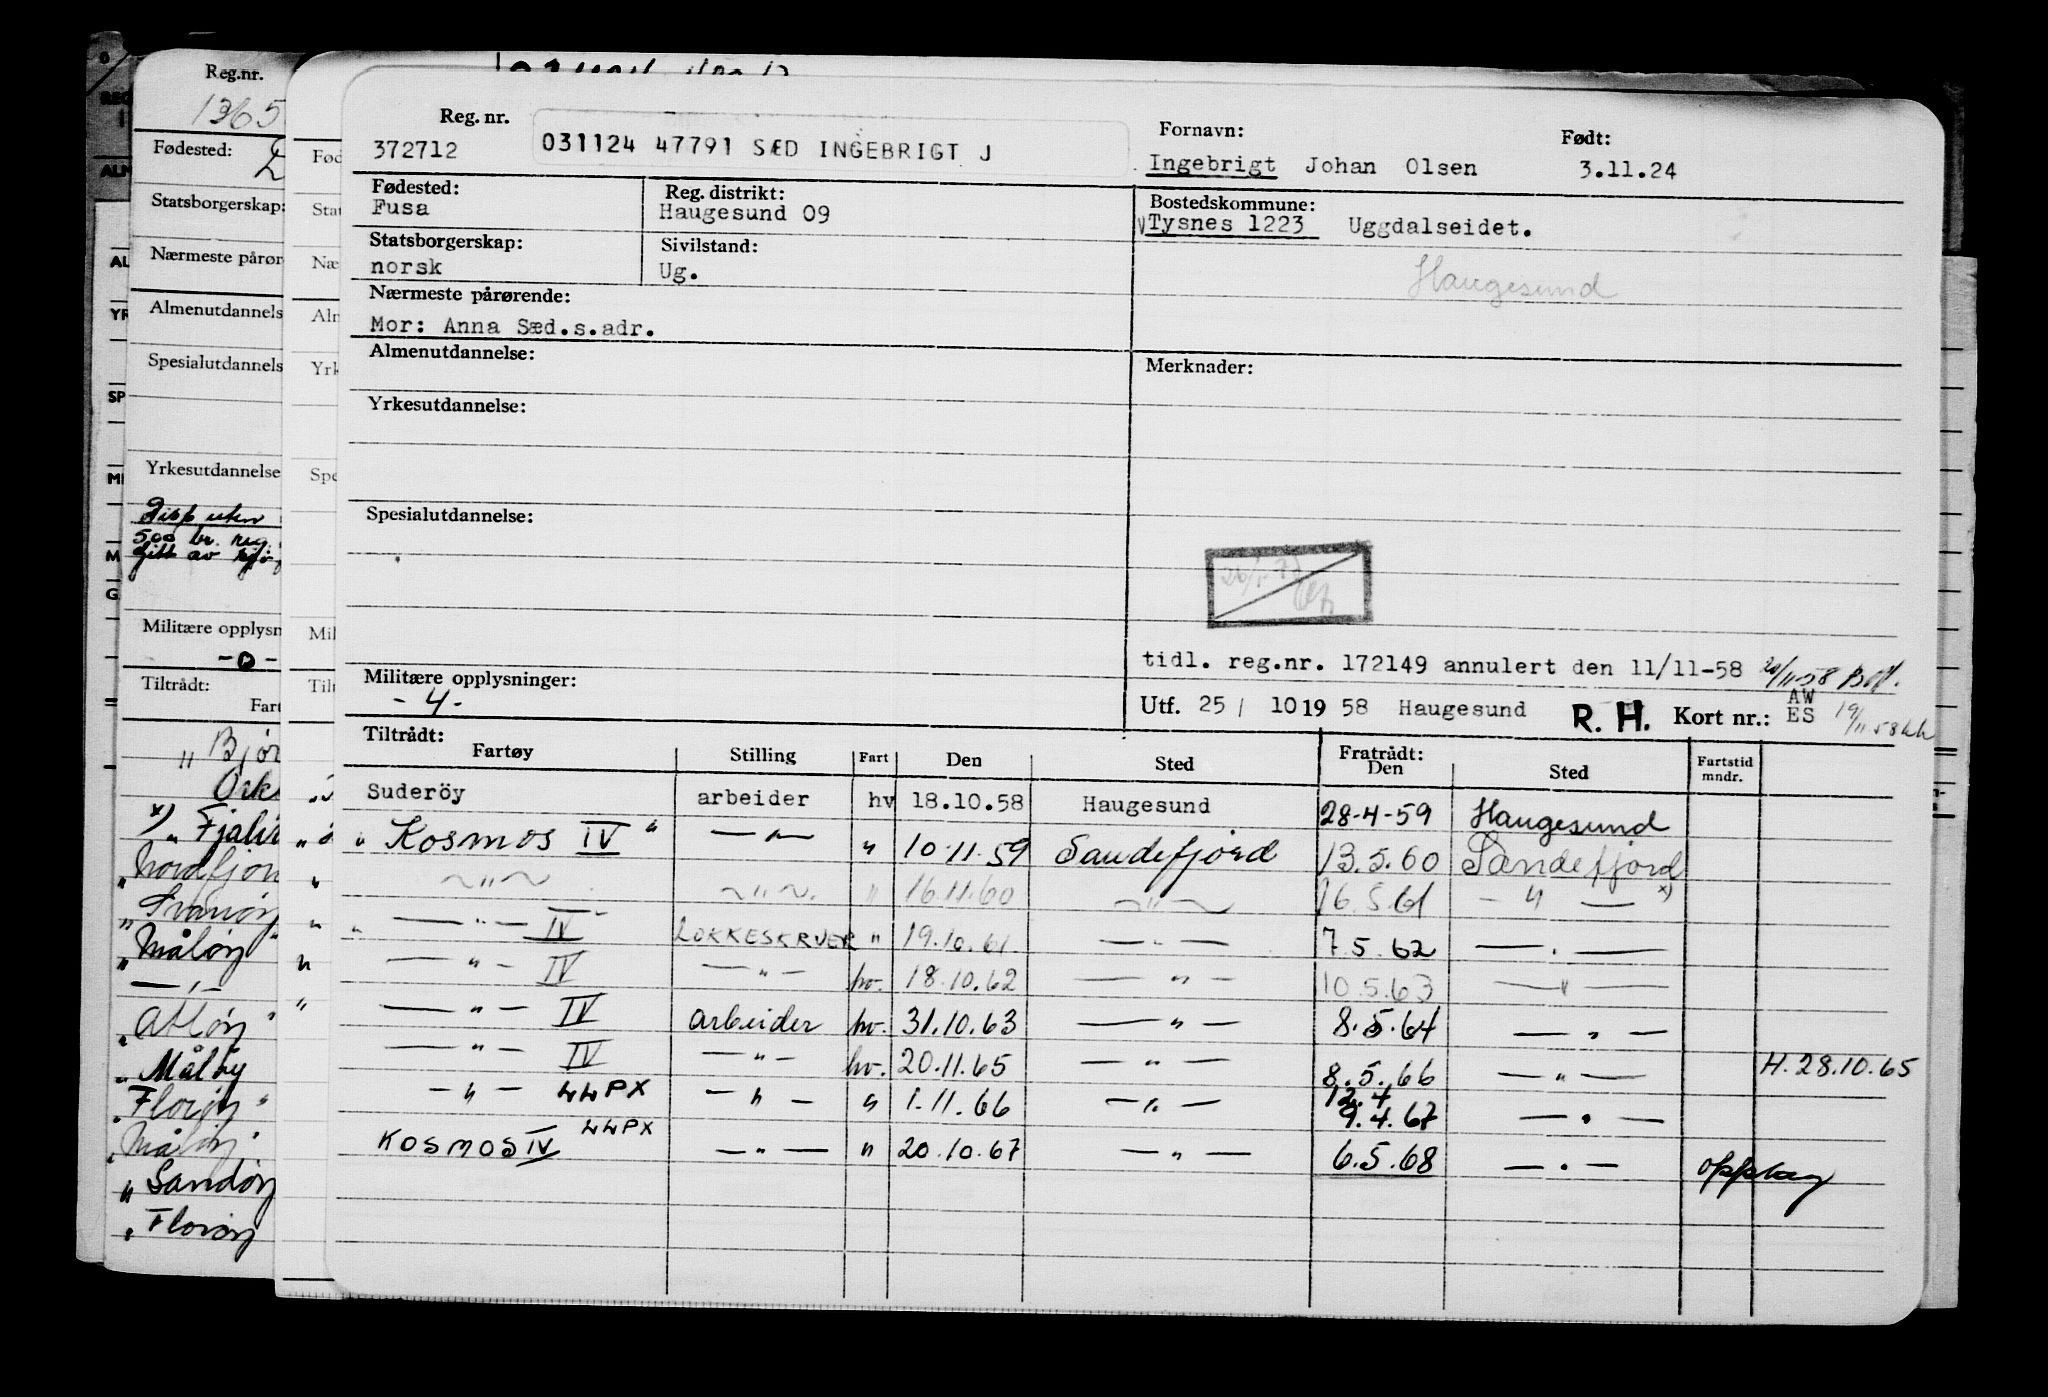 Reg. nr.
372712
031124 47791 SÆD INGEBRIGT J
Fornavn: Født:
Ingebrigt Johan Olsen 3.11.24
Fødested: Reg. distrikt:
Fusa Haugesund 09
Bostedskommune:
Tysnes 1223 Uggdalseidet.
Haugesund
Statsborgerskap: Sivilstand:
norsk Ug.
Nærmeste pårørende:
Mor: Anna Sæd.s.adr.
Almenutdannelse:
Merknader:
Yrkesutdannelse:
Spesialutdannelse:
tidl. reg.nr. 172149 annulert den 11/11-58
Militære opplysninger:
- 4 -
Utf. 25 / 10 19 58 Haugesund R. H. Kort nr.: AW
ES
Tiltrådt: Fratrådt:
Fartøy Stilling Fart Den Sted Den Sted Fartstid mndr.
Suderöy arbeider hv 18.10.58 Haugesund 28-4-59 Haugesund
" Kosmos IV " — " — " 10.11.59 Sandefjord 13.5.60 Sandefjord
~ " ~ ~ " ~ " 16.11.60 ~ " ~ 16.5.61 — " — x)
" — " — IV LOKKESKRUER " 19.10.61 — " — 7.5.62 — " —
— " — IV — " — hv. 18.10.62 — " — 10.5.63 — " —
— " — IV arbeider hv. 31.10.63 — " — 8.5.64 — " —
— " — IV — " — hv. 20.11.65 — " — 8.5.66 — " — H. 28.10.65
— " — LLPX — " — " 1.11.66 — " — 12.4 9.4.67 — " —
KOSMOS IV LLPX — " — " 20.10.67 — " — 6.5.68 — " — opplag
Reg.nr.
1365
Fødested:
Statsborgerskap:
Nærmeste pårør
Almenutdannels
Spesialutdannels
Yrkesutdannelse
Disp uten
500 br. reg.
gitt av
Militære opplysn
- 0 -
Tiltrådt:
Fart
" Bjør
Ork
x) " Fjali
" Nordfjor
" Svanøy
" Måløy "
— " —
" Atløy "
" Måløy
" Florøy "
" Måløy "
" Sandøy
" Florøy